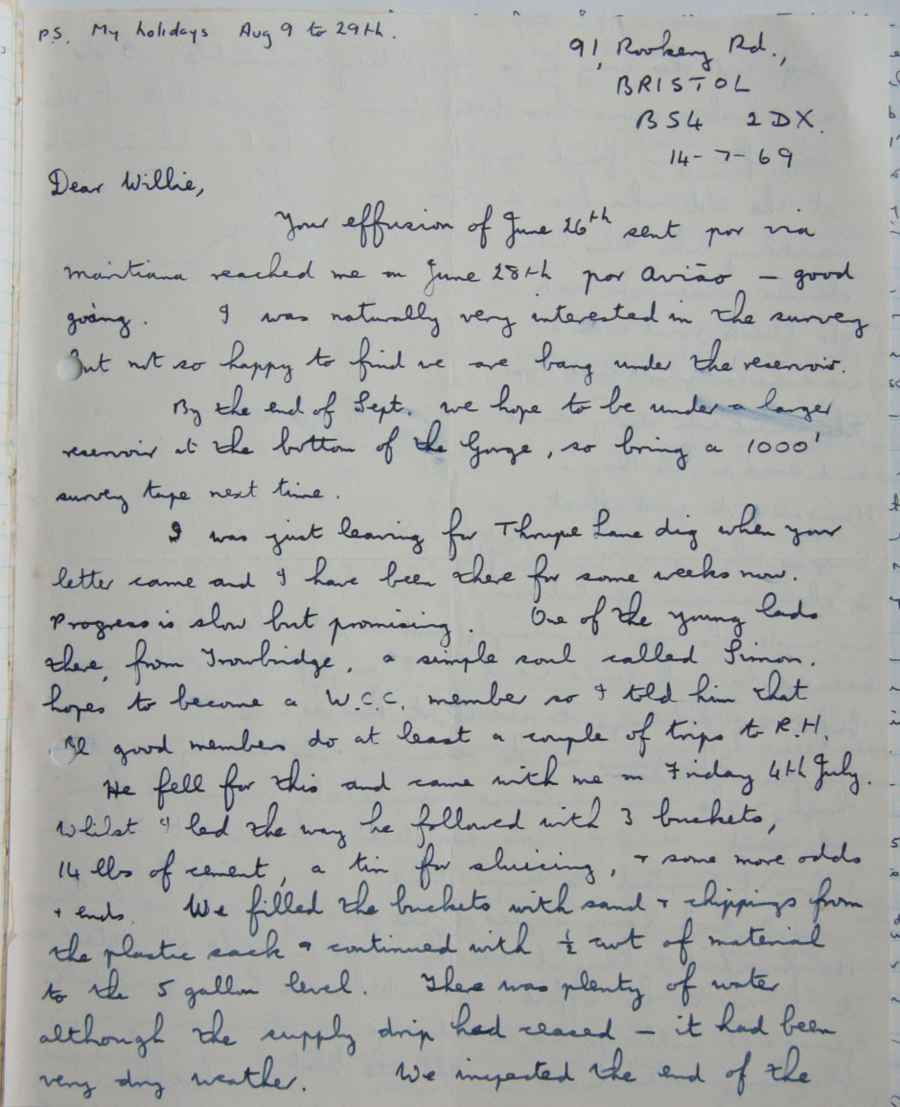 P.S. My holidays Aug 9 to 29th.
91, Rookery Rd.,
BRISTOL
BS4 2DX.
14-7-69
Dear Willie,
Your effusion of June 26th sent por via
reached me on June 28th por Avião — good
going. I was naturally very interested in the survey
but not so happy to find we are bang under the reservoir.
By the end of Sept. we hope to be under a larger
reservoir at the bottom of the Gorge, so bring a 1000'
survey tape next time.
I was just leaving for Thrupe Lane dig when your
letter came and I have been there for some weeks now.
Progress is slow but promising. One of the young lads
there, from Trowbridge, a simple soul called Simon,
hopes to become a W.C.C. member so I told him that
all good members do at least a couple of trips to R.H.
He fell for this and came with me on Friday 4th July.
Whilst I led the way he followed with 3 buckets,
14 lbs of cement, a tin for sluicing, + some more odds
+ ends. We filled the buckets with sand + chippings from
the plastic sack + continued with ½ cwt of material
to the 5 gallon level. There was plenty of water
although the supply drip had ceased — it had been
very dry weather. We inspected the end of the